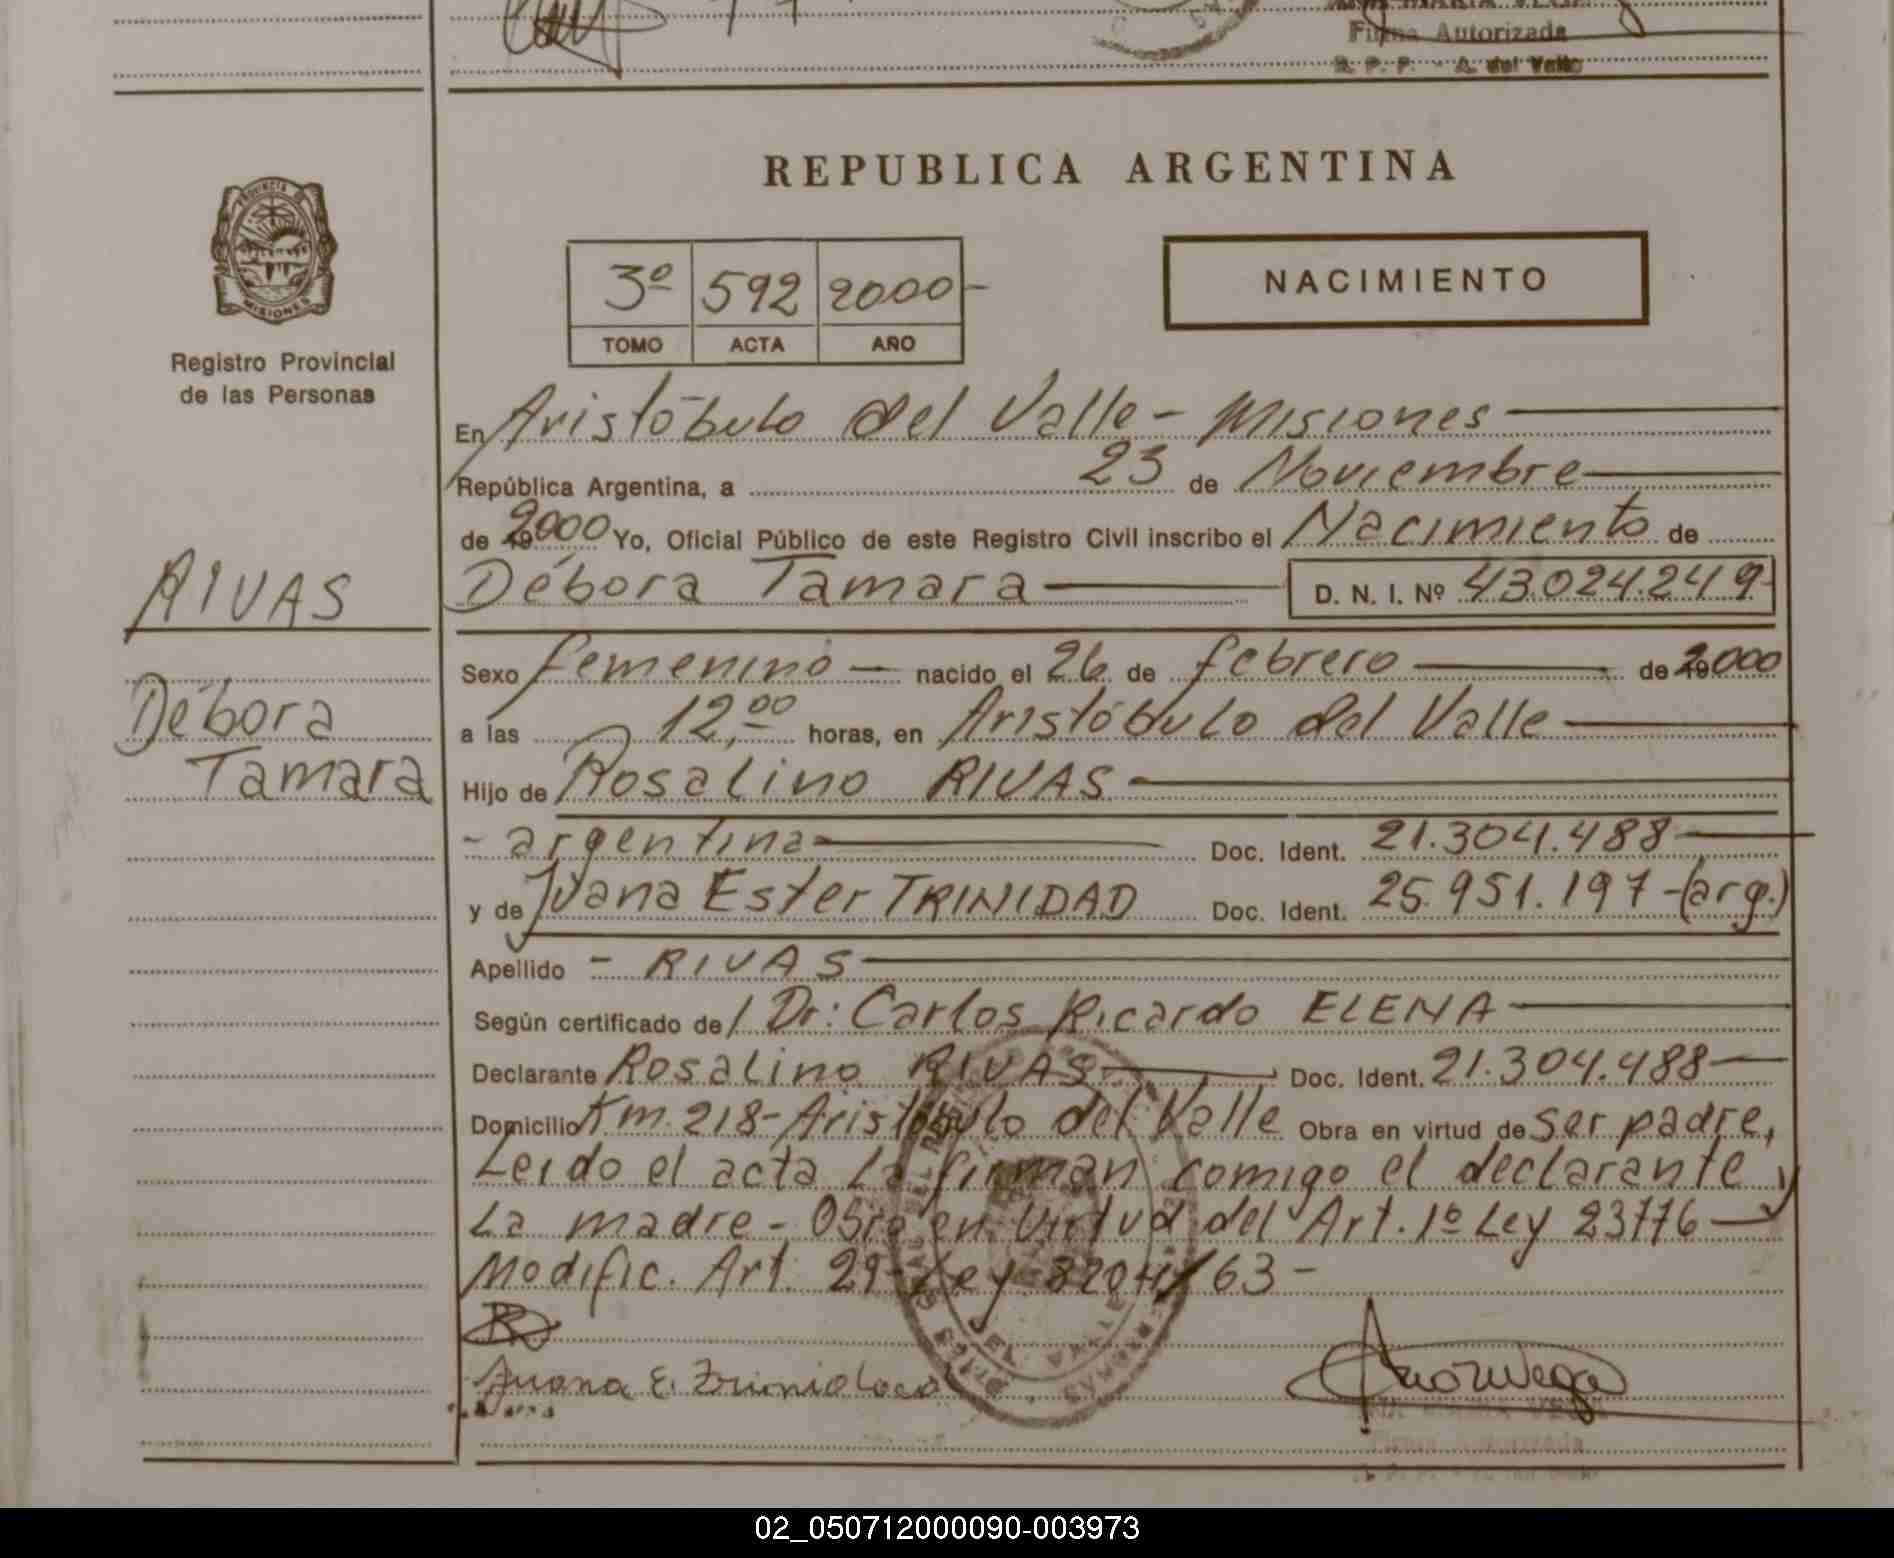 Firma Autorizada
R. P. P. - A. del Valle
REPUBLICA ARGENTINA
PROVINCIA DE
MISIONES
Registro Provincial
de las Personas
3º 592 2000-
TOMO ACTA AÑO
NACIMIENTO
En Aristóbulo del Valle - Misiones
República Argentina, a 23 de Noviembre
de 2000 Yo, Oficial Público de este Registro Civil inscribo el Nacimiento de
Débora Tamara D. N. I. Nº 43.024.249-
RIVAS
Débora
Tamara
Sexo femenino nacido el 26 de febrero de 2000
a las 12,00 horas, en Aristóbulo del Valle
Hijo de Rosalino RIVAS
- argentina Doc. Ident. 21.304.488
y de Juana Ester TRINIDAD Doc. Ident. 25.951.197-(arg.)
Apellido - RIVAS
Según certificado de / Dr: Carlos Ricardo ELENA
Declarante Rosalino RIVAS Doc. Ident. 21.304.488
Domicilio Km. 218- Aristóbulo del Valle Obra en virtud de ser padre,
Leido el acta la firman comigo el declarante y
La madre - Obra en Virtud del Art. 1º Ley 23776
Modific. Art. 29- Ley 8204/63 -
Juana E. Trinidad
02_050712000090-003973